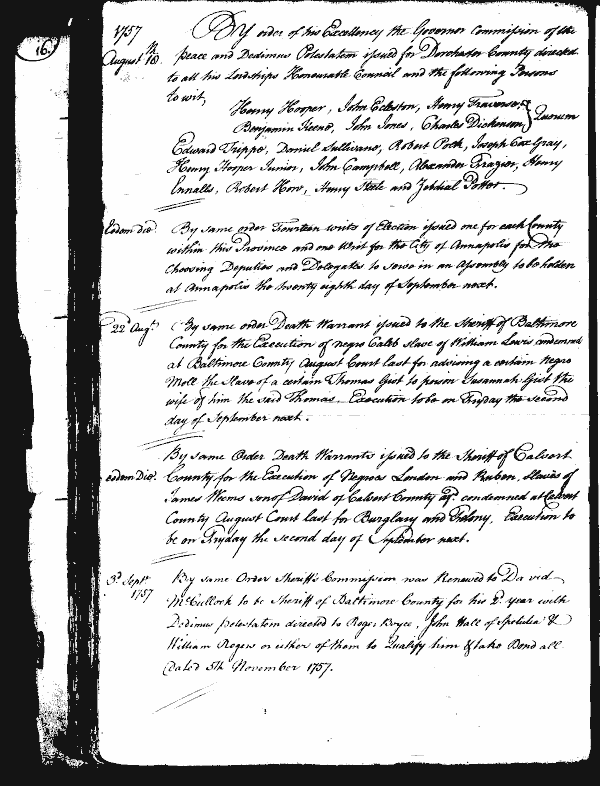 16.
1757
August 18th
By order of his Excellency the Governor Commission of the
Peace and Dedimus Potestatem issued for Dorchester County directed
to all his Lordships Honourable Council and the following Persons
to wit,
Henry Hooper, John Eccleston, Henry Travers,
Benjamin Keene, John Jones, Charles Dickenson, } Quorum
Edward Trippe, Daniel Sullivane, Robert Polk, Joseph Cox Gray,
Henry Hooper Junior, John Campbell, Alexander Frazier, Henry
Ennalls, Robert How, Henry Steele and Zebdial Potter.
Eodem Die.
By same order Fourteen writs of Election issued one for each County
within this Province and one Writ for the City of Annapolis for the
Choosing Deputies and Delegates to serve in an Assembly to be holden
at Annapolis the twenty eighth day of September next.
22d Augt.
By same order Death Warrant issued to the Sheriff of Baltimore
County for the Execution of negro Caleb Slave of William Lewis condemned
at Baltimore County August Court last for advising a certain Negro
Moll the Slave of a certain Thomas Gist to poison Susannah Gist the
wife of him the said Thomas. Execution to be on Fryday the second
day of September next.
eodem Die.
By same Order Death Warrants issued to the Sheriff of Calvert
County for the Execution of Negroes London and Reuben, slaves of
James Wems son of David of Calvert County condemned at Calvert
County August Court last for Burglary and Felony, Execution to
be on Fryday the Second day of September next.
3d Septr.
1757
By same Order Sheriff's Commission was Renewed to David
McCulloch to be Sheriff of Baltimore County for his 2d. year with
Dedimus potestatem directed to Rogr. Boyce, John Hall of &
William Rogers or either of them to Qualify him & take Bond all
Dated 5th November 1757.